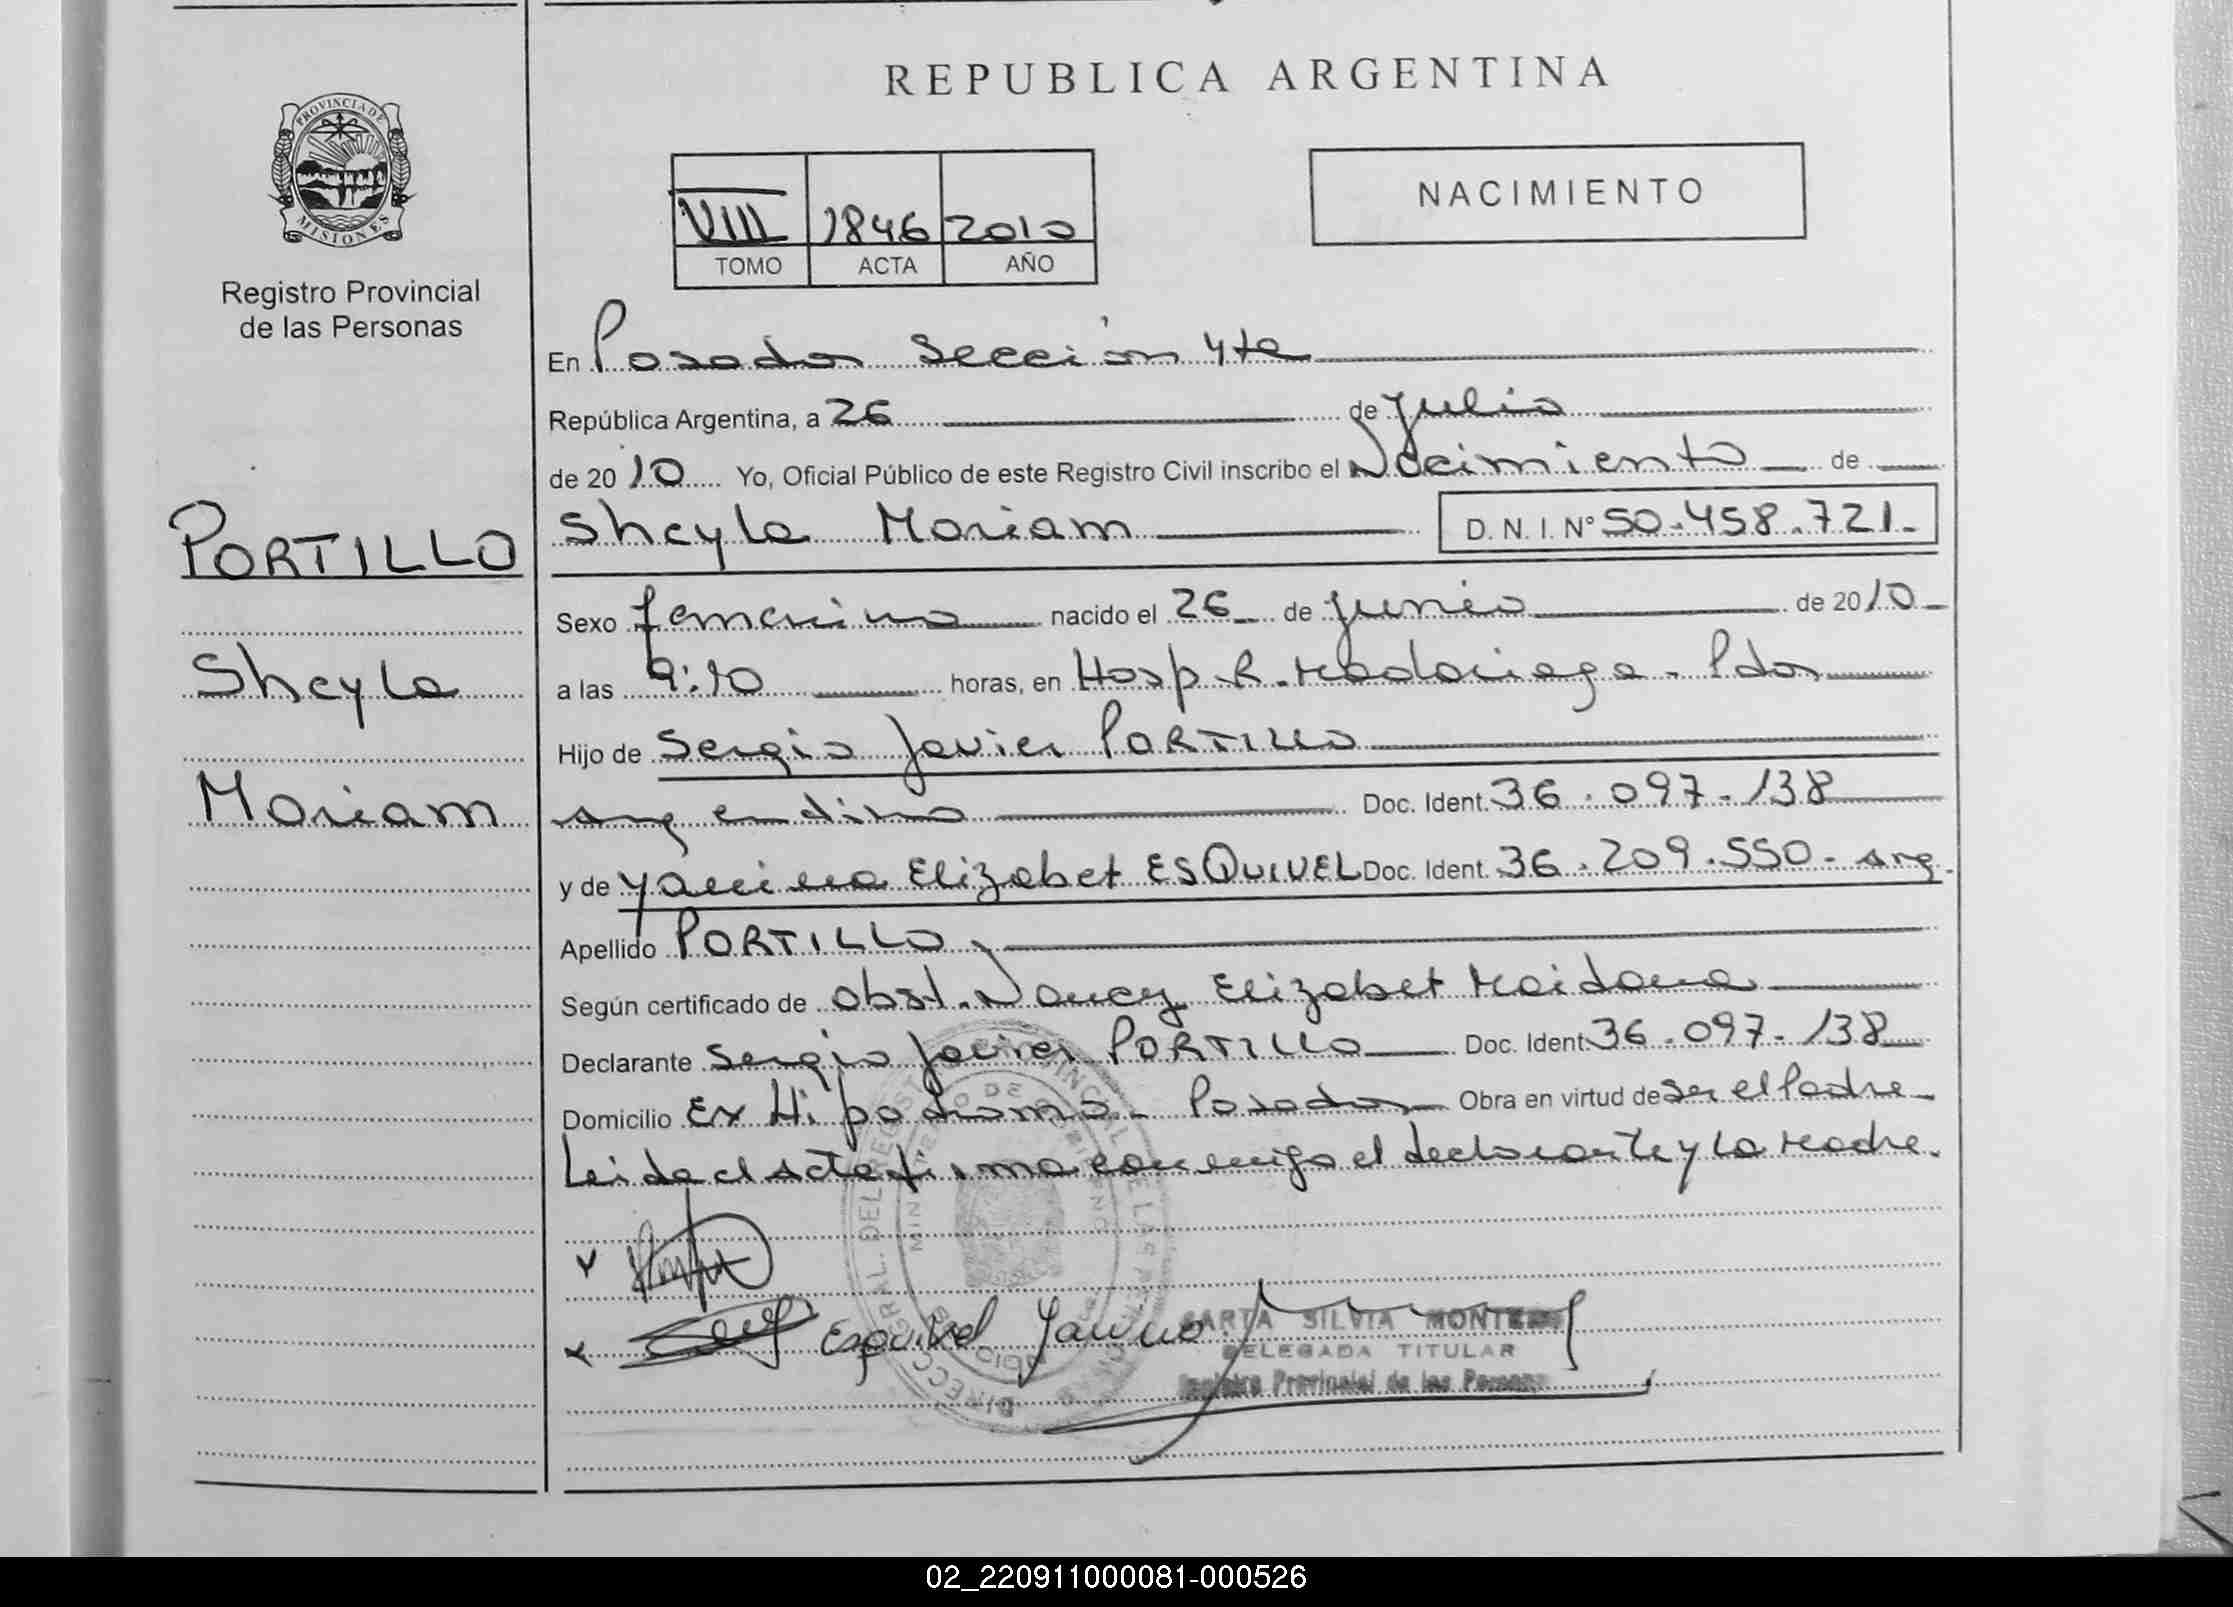 REPUBLICA ARGENTINA
PROVINCIA DE
MISIONES
Registro Provincial
de las Personas
VIII 1846 2010
TOMO ACTA AÑO
NACIMIENTO
En Posadas Sección 4ta
República Argentina, a 26 de Julio
de 2010 Yo, Oficial Público de este Registro Civil inscribo el Nacimiento de
PORTILLO
Sheyla
Mariam
Sheyla Mariam D. N. I. N° 50.458.721.-
Sexo femenino nacido el 26 de junio de 2010
a las 9:10 horas, en Hosp. R. Madariaga - Pdas
Hijo de Sergio Javier PORTILLO
argentino Doc. Ident. 36.097.138
y de Yanina Elizabet ESQUIVEL Doc. Ident. 36.209.550 - arg.
Apellido PORTILLO
Según certificado de obst. Nancy Elizabet Maidana
Declarante Sergio Javier PORTILLO Doc. Ident. 36.097.138
Domicilio Ex Hipodromo - Posadas Obra en virtud de ser el Padre
Leida el acta firma conmigo el declarante y la Madre.
Esquivel Yanina
SILVIA
DELEGADA TITULAR
Registro Provincial de las Personas
02_220911000081-000526